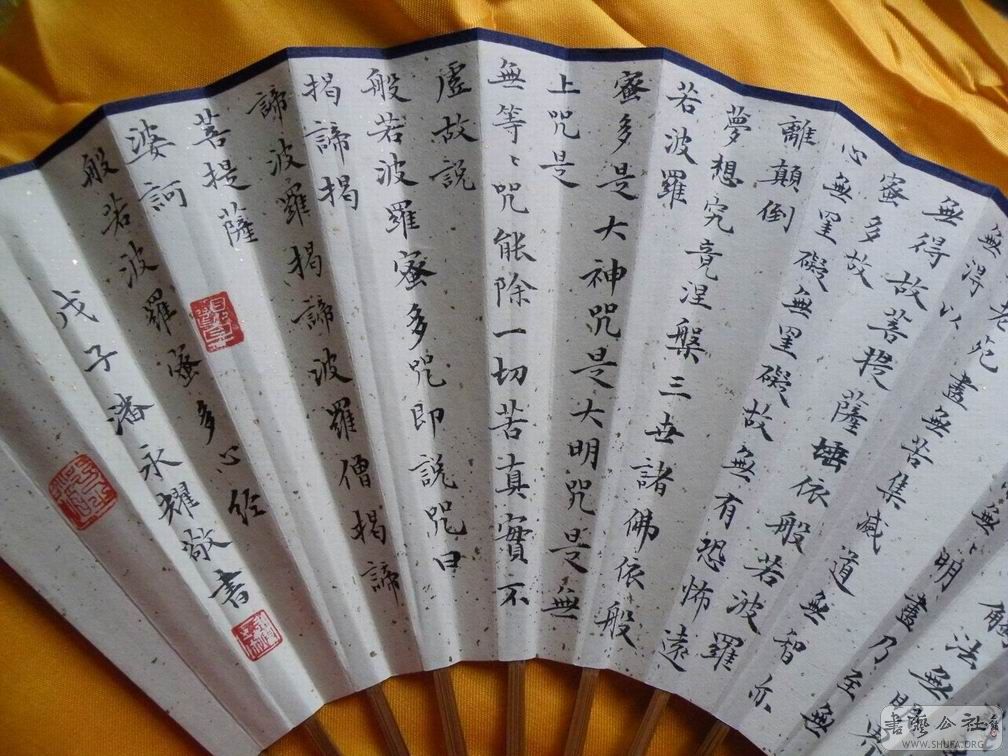 法無
無、明盡乃至無
老死盡無苦集滅道無智亦
無得以
無得故菩提薩埵依般若波羅
蜜多故
心無罣礙無罣礙故無有恐怖遠
離顛倒
夢想究竟涅槃三世諸佛依般
若波羅
蜜多是大神咒是大明咒是無
上咒是
無等、咒能除一切苦真實不
虛故說
般若波羅蜜多咒即說咒曰
揭諦揭
諦波羅揭諦波羅僧揭諦
菩提薩
婆訶
般若波羅蜜多心经
戊子潘永耀敬書
書藝公社
WWW.SHUFA.ORG